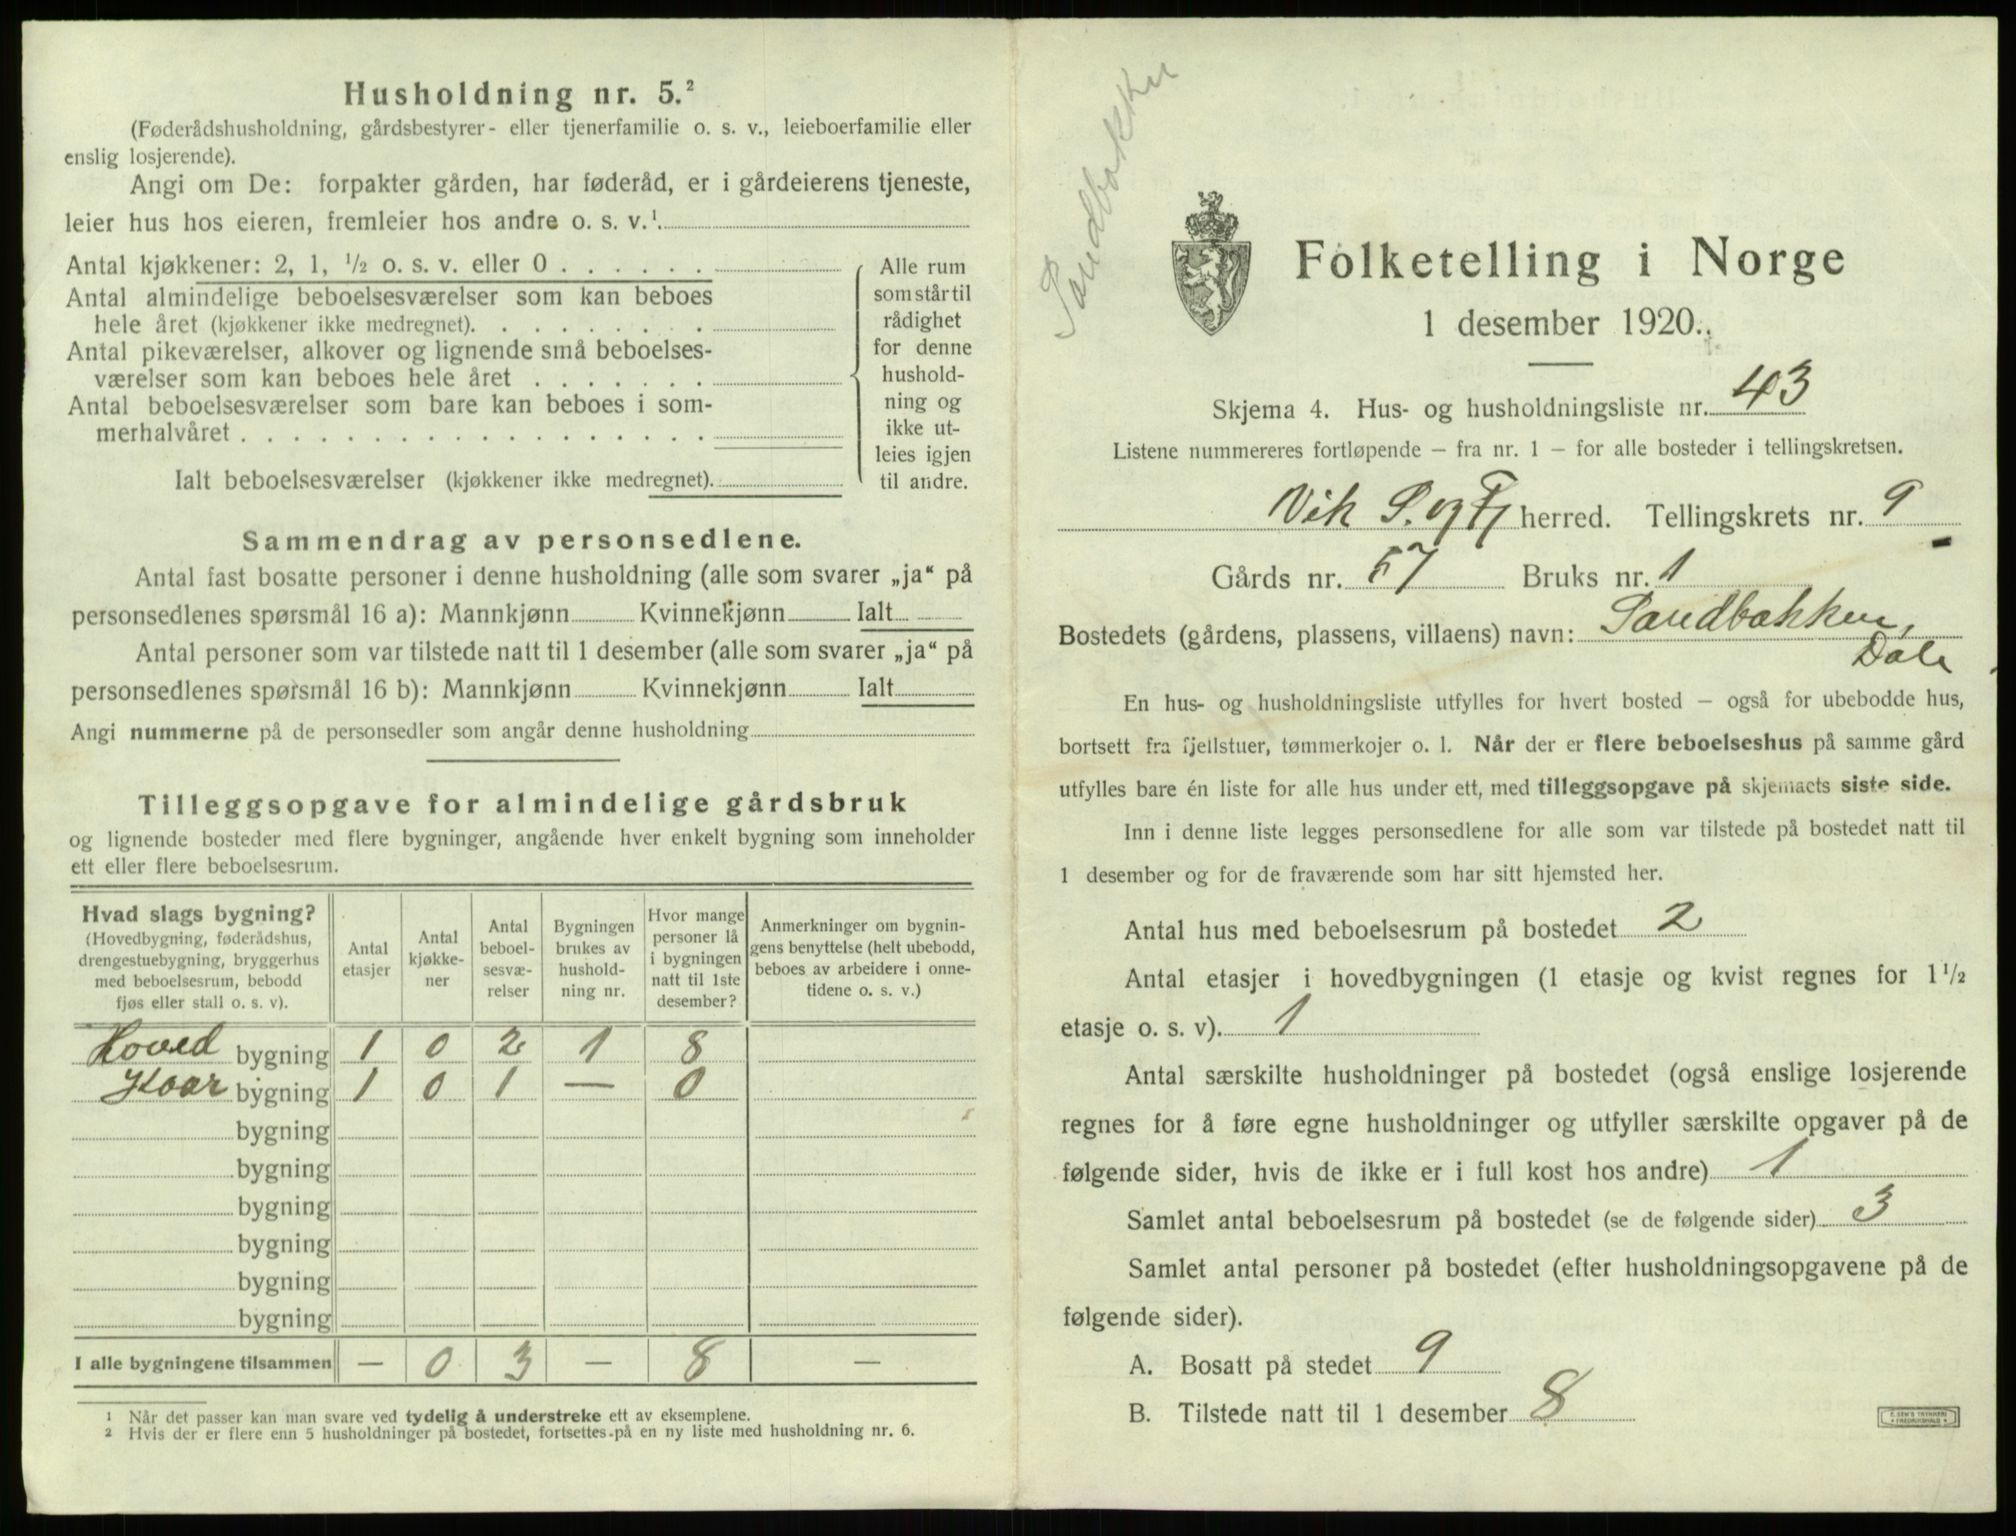 Husholdning nr. 5.²
(Føderådshusholdning, gårdsbestyrer- eller tjenerfamilie o. s. v., leieboerfamilie eller
enslig losjerende).
Angi om De: forpakter gården, har føderåd, er i gårdeierens tjeneste,
leier hus hos eieren, fremleier hos andre o. s. v.¹.
Antal kjøkkener: 2, 1, ½ o. s. v. eller 0
Antal almindelige beboelsesværelser som kan beboes
hele året (kjøkkener ikke medregnet).
Antal pikeværelser, alkover og lignende små beboelses-
værelser som kan beboes hele året
Antal beboelsesværelser som bare kan beboes i som-
merhalvåret
Ialt beboelsesværelser (kjøkkener ikke medregnet).
Alle rum
som står til
rådighet
for denne
hushold-
ning og
ikke ut-
leies igjen
til andre.
Sammendrag av personsedlene.
Antal fast bosatte personer i denne husholdning (alle som svarer „ja“ på
personsedlenes spørsmål 16 a): Mannkjønn Kvinnekjønn Ialt
Antal personer som var tilstede natt til 1 desember (alle som svarer „ja“ på
personsedlenes spørsmål 16 b): Mannkjønn Kvinnekjønn Ialt
Angi nummerne på de personsedler som angår denne husholdning
Tilleggsopgave for almindelige gårdsbruk
og lignende bosteder med flere bygninger, angående hver enkelt bygning som inneholder
ett eller flere beboelsesrum.
Hvad slags bygning?
(Hovedbygning, føderådshus,
drengestuebygning, bryggerhus
med beboelsesrum, bebodd
fjøs eller stall o. s. v).
Antal
etasjer
Antal
kjøkke-
ner
Antal
beboel-
sesvæ-
relser
Bygningen
brukes av
hushold-
ning nr.
Hvor mange
personer lå
i bygningen
natt til 1ste
desember?
Anmerkninger om bygnin-
gens benyttelse (helt ubebodd,
beboes av arbeidere i onne-
tidene o. s. v.)
Hoved bygning 1 0 2 1 8
bygning 1 0 1 — 0
bygning
bygning
bygning
bygning
bygning
bygning
I alle bygningene tilsammen — 0 3 — 8 —
¹ Når det passer kan man svare ved tydelig å understreke ett av eksemplene.
² Hvis der er flere enn 5 husholdninger på bostedet, fortsettes på en ny liste med husholdning nr. 6.
Sandbakken
Folketelling i Norge
1 desember 1920.
Skjema 4. Hus- og husholdningsliste nr. 43
Listene nummereres fortløpende – fra nr. 1 – for alle bosteder i tellingskretsen.
Vik S. og Fj herred. Tellingskrets nr. 9
Gårds nr. 57 Bruks nr. 1
Bostedets (gårdens, plassens, villaens) navn: Sandbakken,
Dale
En hus- og husholdningsliste utfylles for hvert bosted – også for ubebodde hus,
bortsett fra fjellstuer, tømmerkojer o. l. Når der er flere beboelseshus på samme gård
utfylles bare én liste for alle hus under ett, med tilleggsopgave på skjemaets siste side.
Inn i denne liste legges personsedlene for alle som var tilstede på bostedet natt til
1 desember og for de fraværende som har sitt hjemsted her.
Antal hus med beboelsesrum på bostedet 2
Antal etasjer i hovedbygningen (1 etasje og kvist regnes for 1½
etasje o. s. v). 1
Antal særskilte husholdninger på bostedet (også enslige losjerende
regnes for å føre egne husholdninger og utfyller særskilte opgaver på de
følgende sider, hvis de ikke er i full kost hos andre) 1
Samlet antal beboelsesrum på bostedet (se de følgende sider) 3
Samlet antal personer på bostedet (efter husholdningsopgavene på de
følgende sider).
A. Bosatt på stedet 9
B. Tilstede natt til 1 desember 8